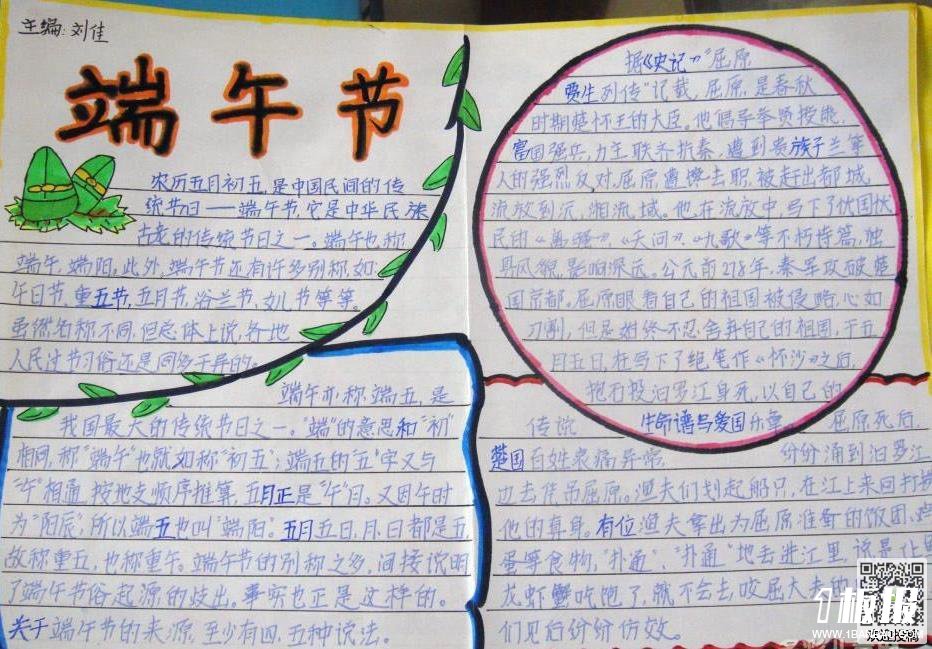 主编:刘佳
端午节
农历五月初五,是中国民间的传
统节日——端午节,它是中华民族
古老的传统节日之一。端午也称
端午,端阳。此外,端午节还有许多别称,如:
午日节,重五节,五月节,浴兰节,女儿节等等。
虽然名称不同,但总体上说,各地
人民过节习俗还是同多于异的。
端午亦称端五,是
我国最大的传统节日之一。"端"的意思和"初"
相同,称"端午"也就如称"初五";端五的"五"字又与
"午"相通,按地支顺序推算,五月正是"午"月。又因午时
为"阳辰",所以端五也叫"端阳"。五月五日,月、日都是五,
故称重五,也称重午。端午节的别称之多,间接说明
了端午节俗起源的歧出。事实也正是这样的。
关于端午节的来源,至少有四、五种说法。
据《史记》"屈原
贾生列传"记载,屈原,是春秋
时期楚怀王的大臣。他倡导举贤授能,
富国强兵,力主联齐抗秦,遭到贵族子兰等
人的强烈反对,屈原遭馋去职,被赶出都城,
流放到沅、湘流域。他在流放中,写下了忧国忧
民的《离骚》、《天问》、《九歌》等不朽诗篇,独
具风貌,影响深远。公元前278年,秦军攻破楚
国京都。屈原眼看自己的祖国被侵略,心如
刀割,但是始终不忍舍弃自己的祖国,于五
月五日,在写下了绝笔作《怀沙》之后,
抱石投汩罗江身死,以自己的
传说 生命谱与爱国乐章。 屈原死后,
楚国百姓哀痛异常, 纷纷涌到汩罗江
边去凭吊屈原。渔夫们划起船只,在江上来回打捞
他的真身。有位渔夫拿出为屈原准备的饭团、鸡
蛋等食物,"扑通、"扑通"地丢进江里,说是让
龙虾蟹吃饱了,就不会去咬屈大夫的
们见后纷纷仿效。
1板报
WWW.1BANBAO.COM
欢迎投稿